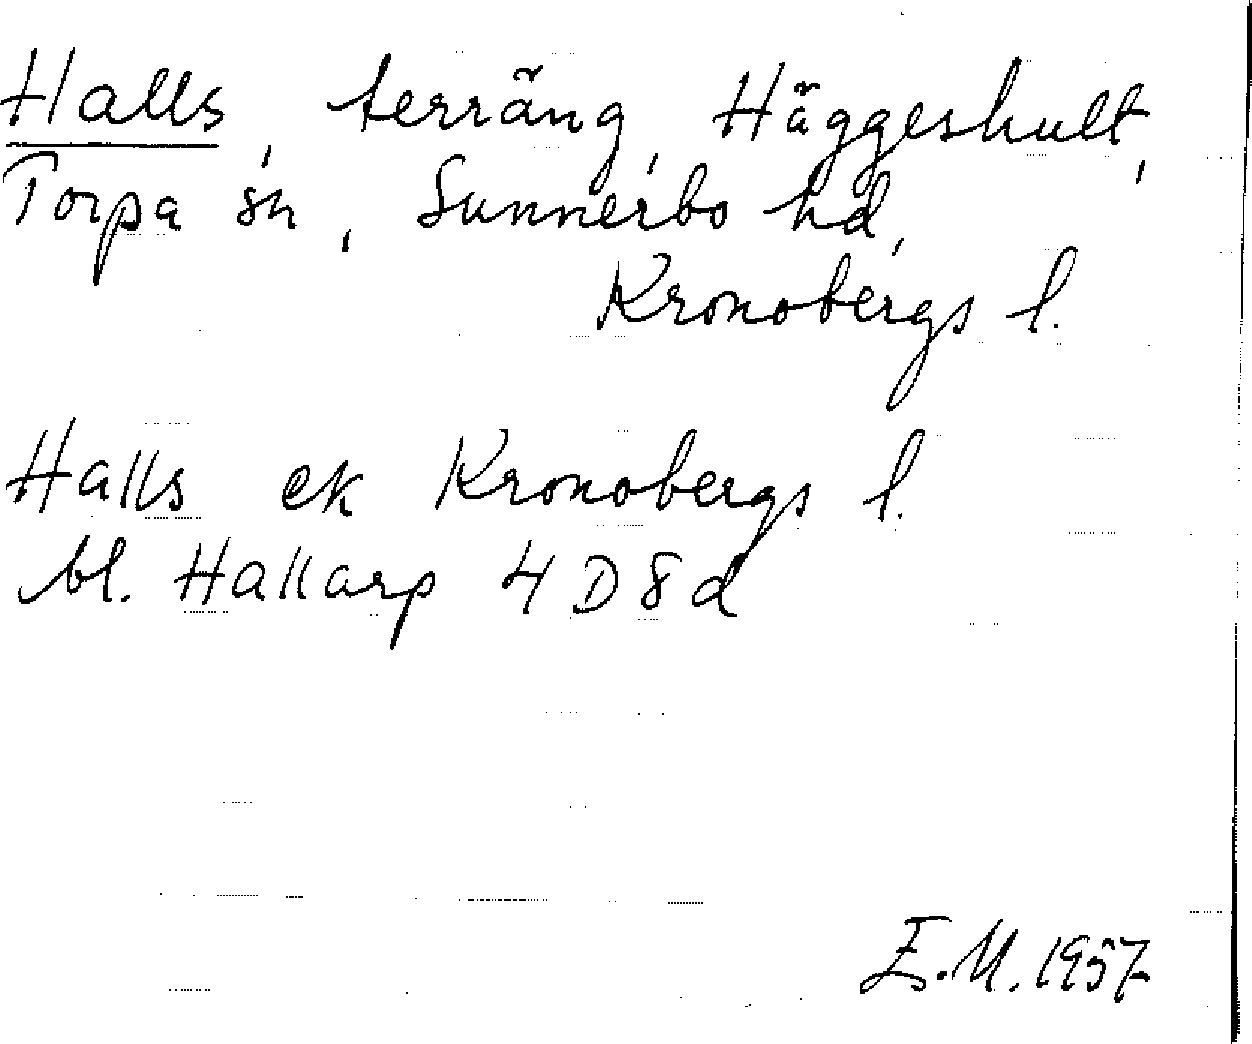 Halls, terräng, Häggeshult,
Torpa sn, Sunnerbo hd,
Kronobergs l.
Halls ek Kronobergs l.
bl. Hallarp 4 D 8 d
E.M. 1957